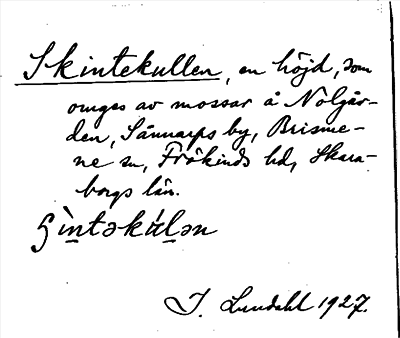 Skintekullen, en höjd, som
omges av mossar å Nolgår-
den, Sännarps by, Brisme-
ne sn, Frökinds hd, Skara-
borgs län.
I. Lundahl 1927.